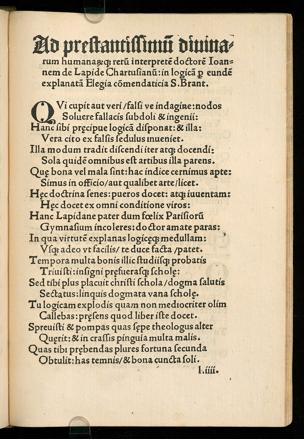 Ad prestantissimū diuina-
rum humanaꝗꝫ rerū interpretē doctorē Ioan-
nem de Lapide Chartusianū: in logicā ꝑ eundē
explanatā Elegia cōmendaticia S. Brant.
QVi cupit aut veri/falsi ve indagine: nodos
Soluere fallacis subdoli & ingenii:
Hanc sibi pręcipue logicā disponat: & illa:
Vera cito ex falsis sedulus inueniet.
Illa modum tradit discendi iter atꝗ docendi:
Sola quidē omnibus est artibus illa parens.
Quę bona vel mala sint: hac indice cernimus apte:
Simus in officio/aut qualibet arte/licet.
Hęc doctrina senes: pueros docet: atꝗ iuuentam:
Hęc docet ex omni conditione viros:
Hanc Lapidane pater dum fœlix Parisiorū
Gymnasium incoleres: doctor amate paras:
In qua virtutē explanas logicęꝗ medullam:
Vsꝗ adeo vt facilis/te duce facta/patet.
Tempora multa bonis illic studiisꝗ probatis
Triuisti: insigni pręfuerasꝗ scholę:
Sed tibi plus placuit christi schola/dogma salutis
Sectatus: linquis dogmata vana scholę.
Tu logicam explodis quam non mediocriter olim
Callebas: pręsens quod liber iste docet.
Spreuisti & pompas quas sępe theologus alter
Quęrit: & in crassis pinguia multa malis.
Quas tibi prębendas plures fortuna secunda
Obtulit: has temnis/& bona cuncta soli.
1.iiii.